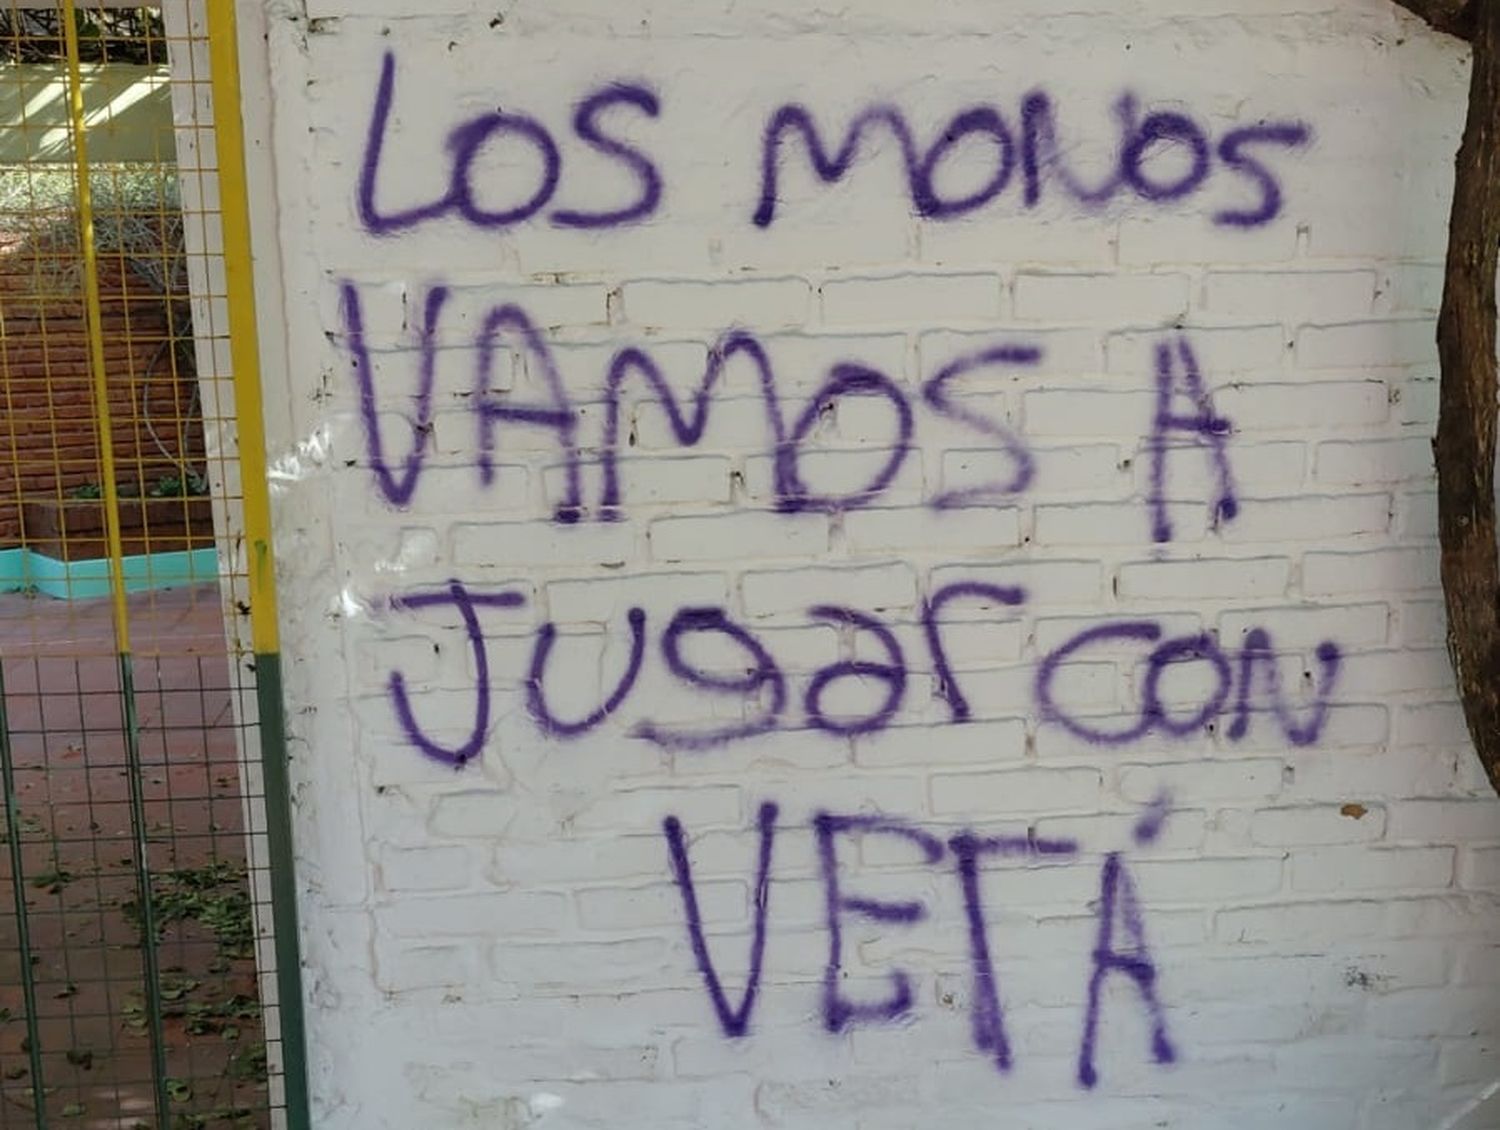 LOS MONOS
VAMOS A
Jugar CON
VETÁ